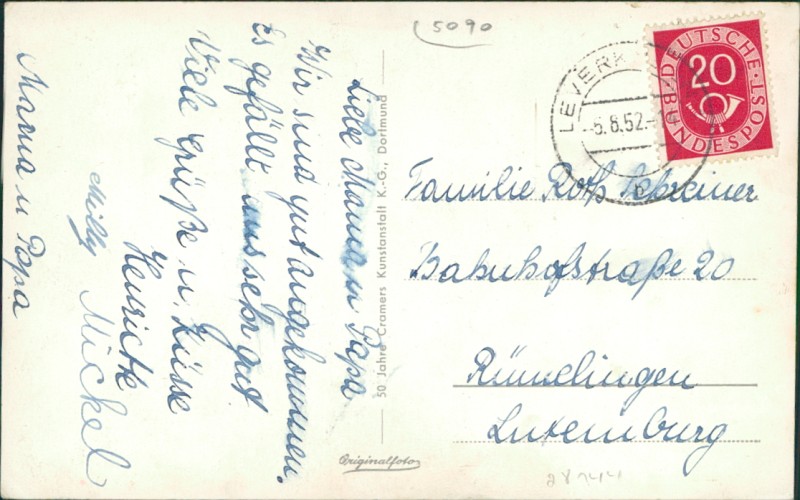 Liebe Mama u Papa
Wir sind gut angekommen.
Es gefällt uns sehr gut
Viele Grüße u. Küsse
Henriette
Milly Mickel
Mama u Papa
50 Jahre Cramers Kunstanstalt K.-G., Dortmund
Originalfoto
5090
LEVERK
-5.8.52.-
DEUTSCHE
BUNDESPOST
20
Familie Roth Schreiner
Bahnhofstraße 20
Rümelingen
Luxemburg